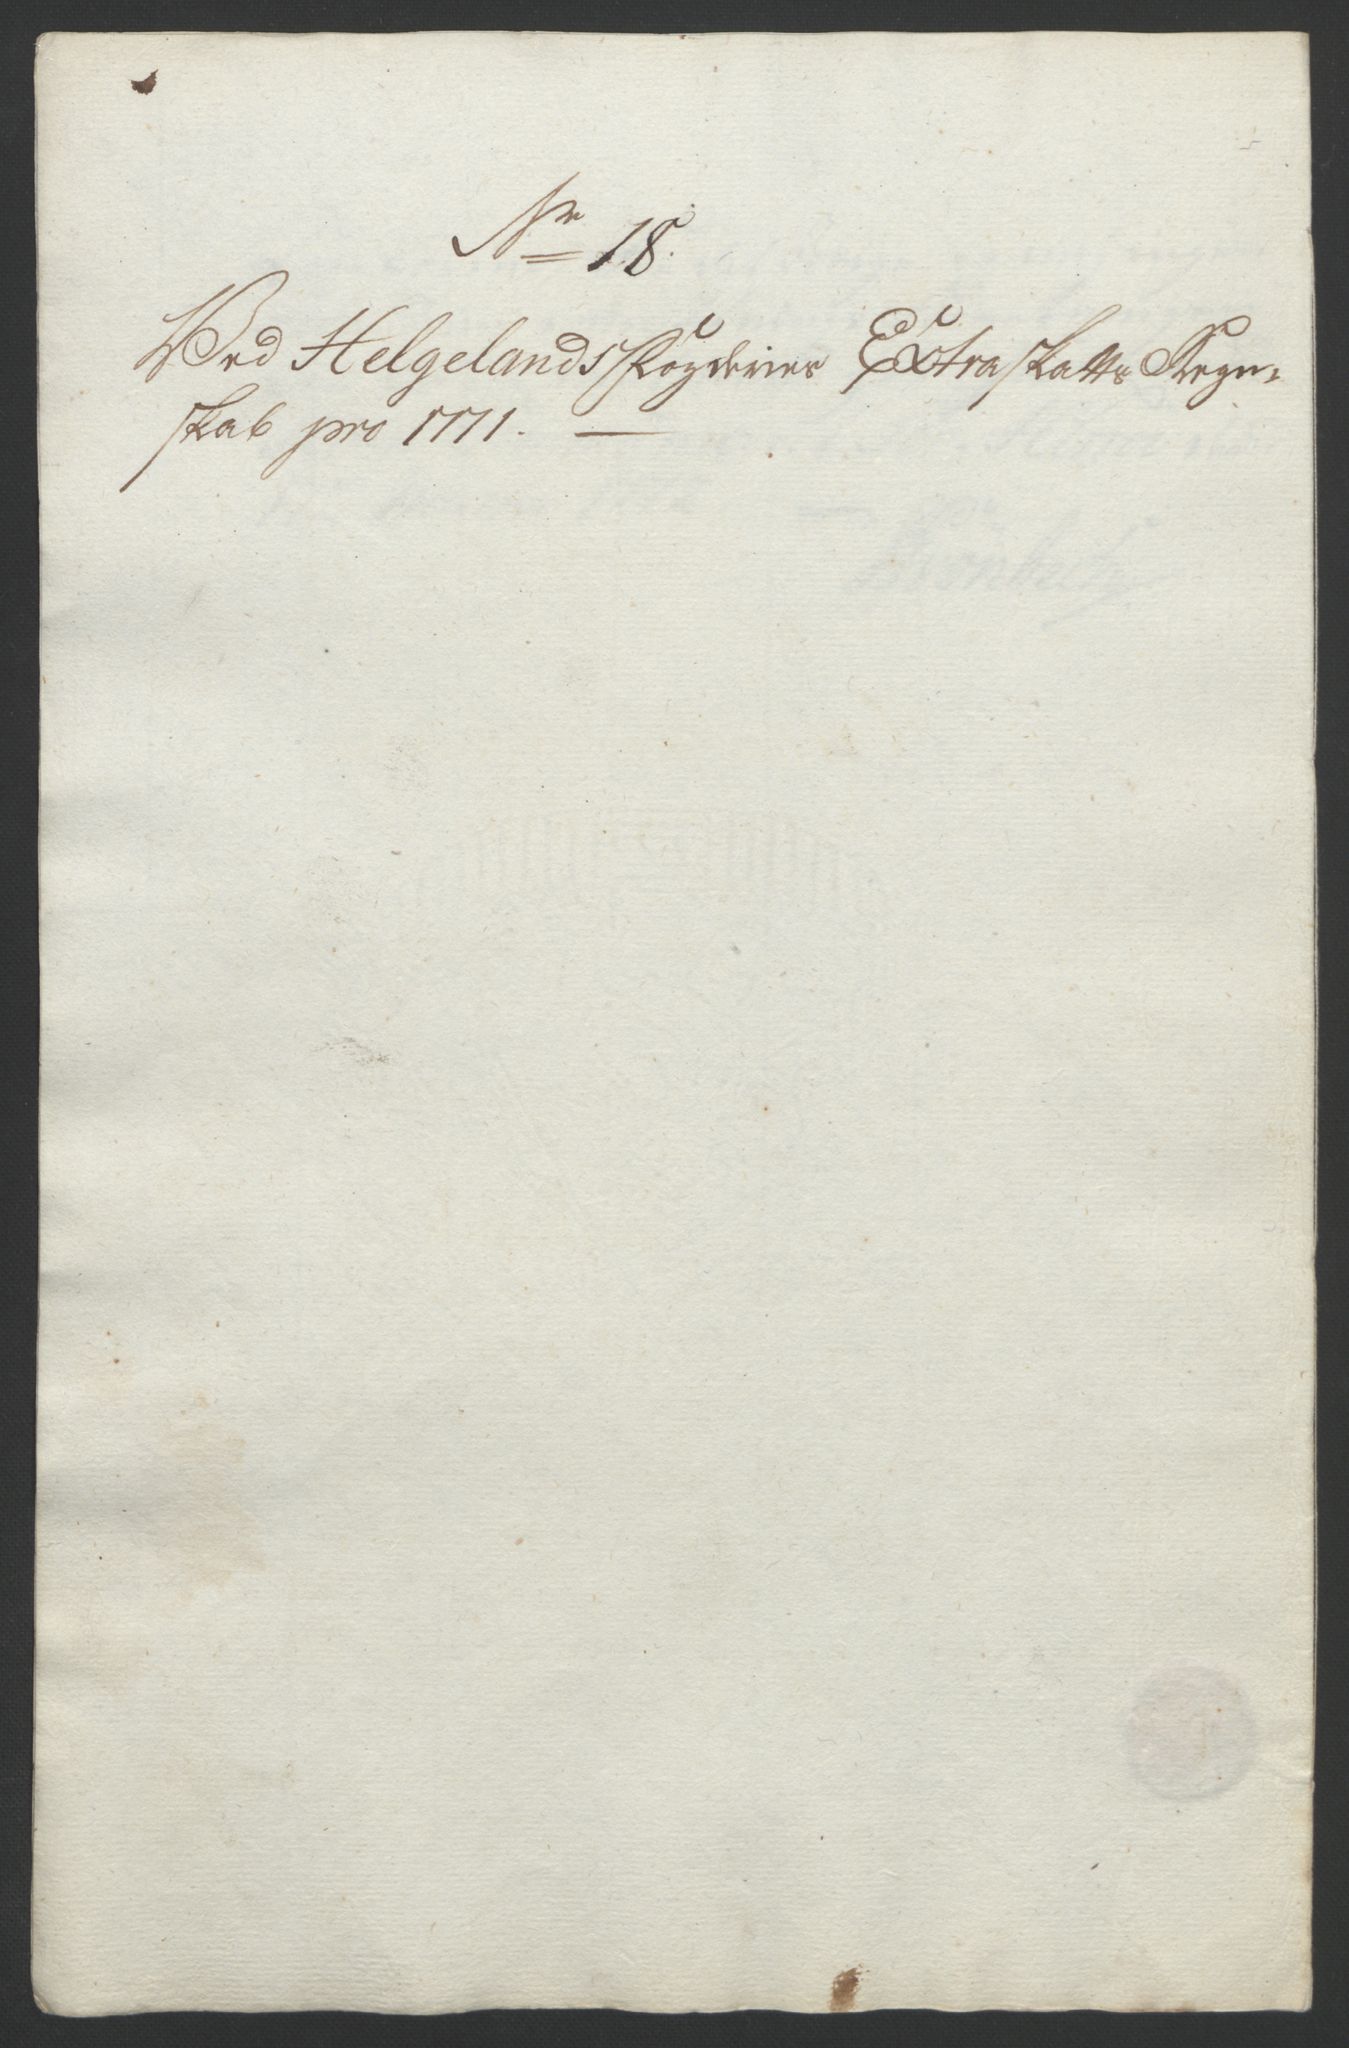 No 18.
Ved Helgelands Fogderies Extra skatts Regn-
skab pro 1771. —